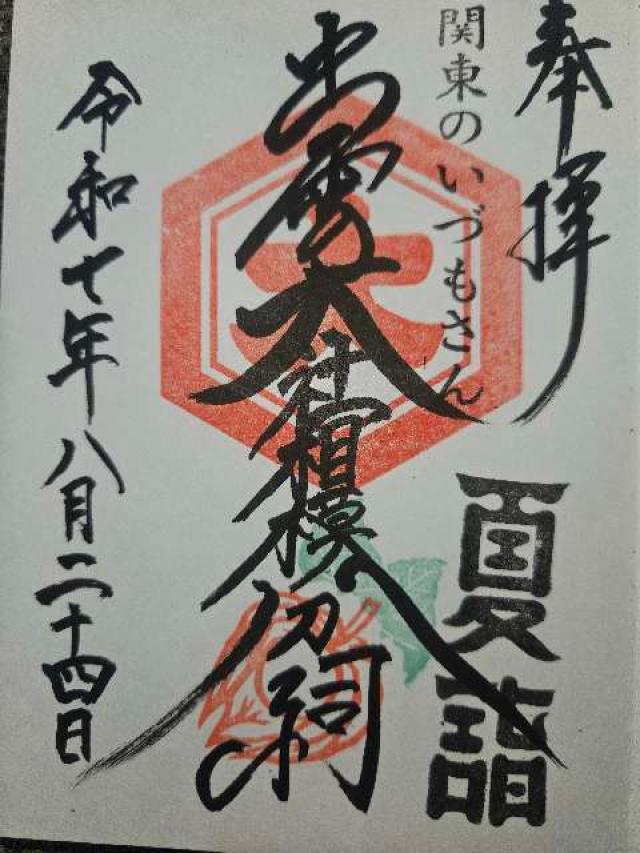 奉拝
関東のいづもさん
夏詣
大
出雲大社相模分祠
令和七年八月二十四日